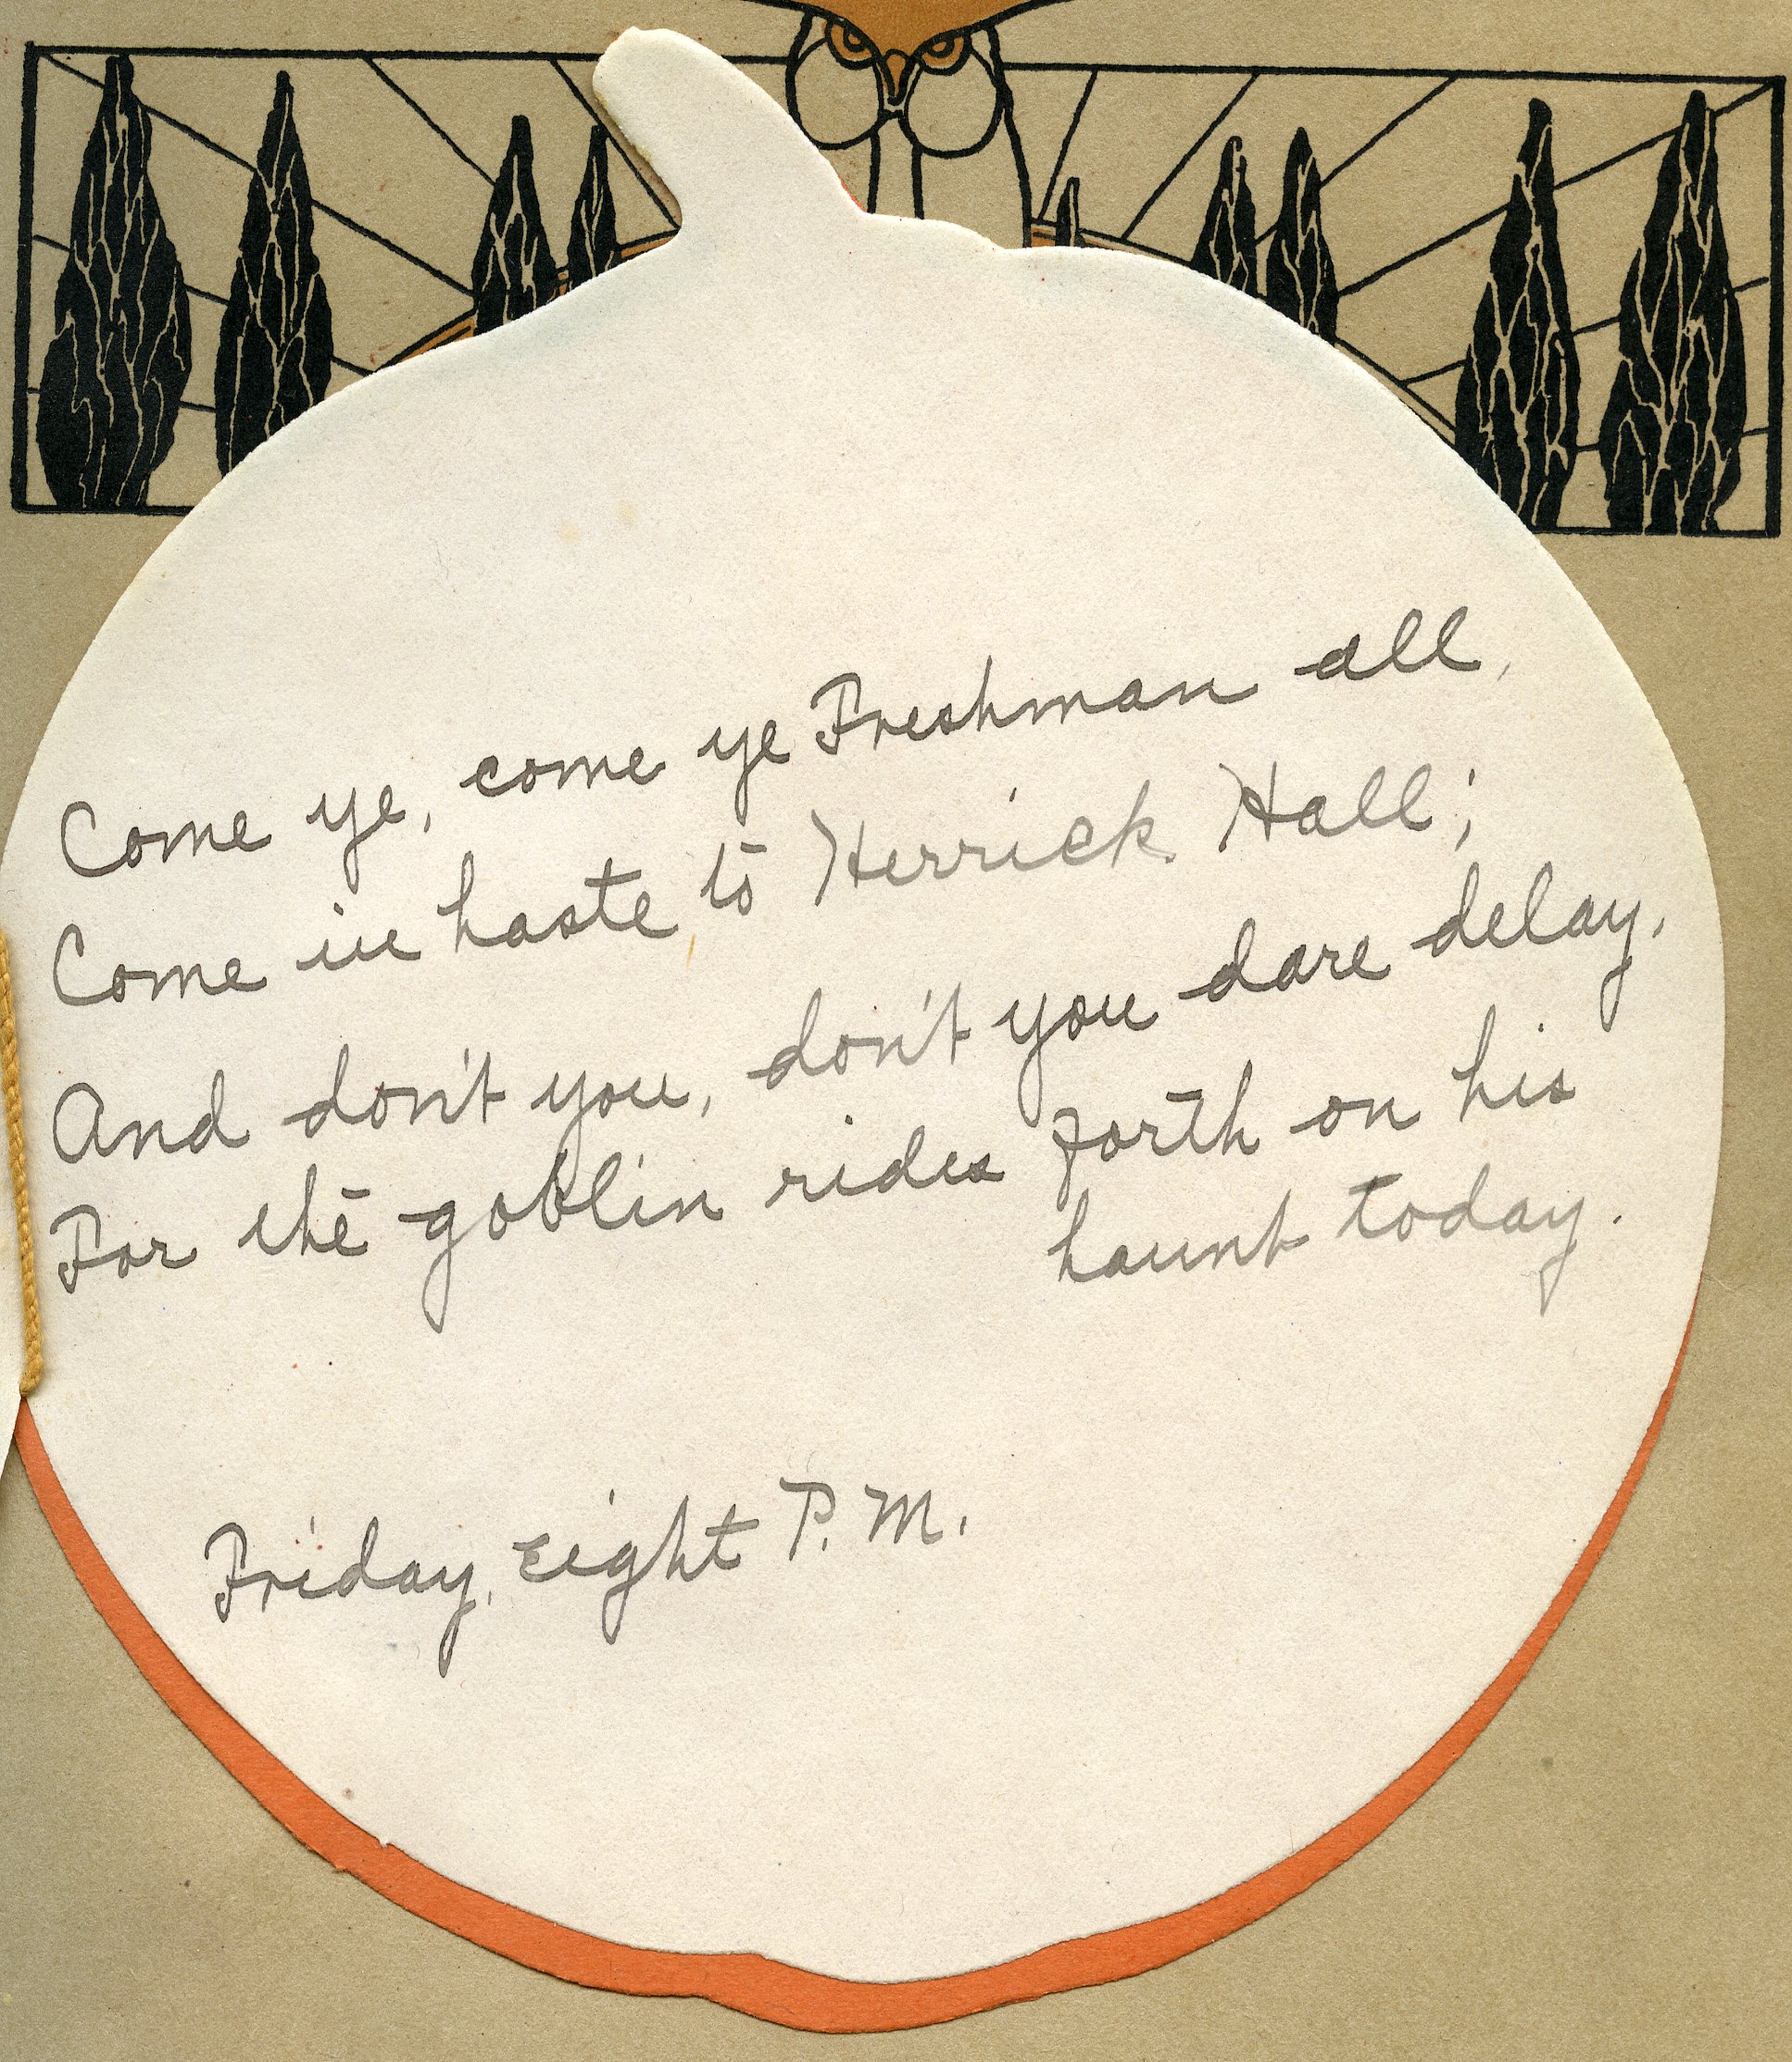 Come ye, come ye Freshman all,
Come in haste to Herrick Hall;
And don't you, don't you dare delay,
For the goblin rides forth on his
haunt today.
Friday, eight P.M.